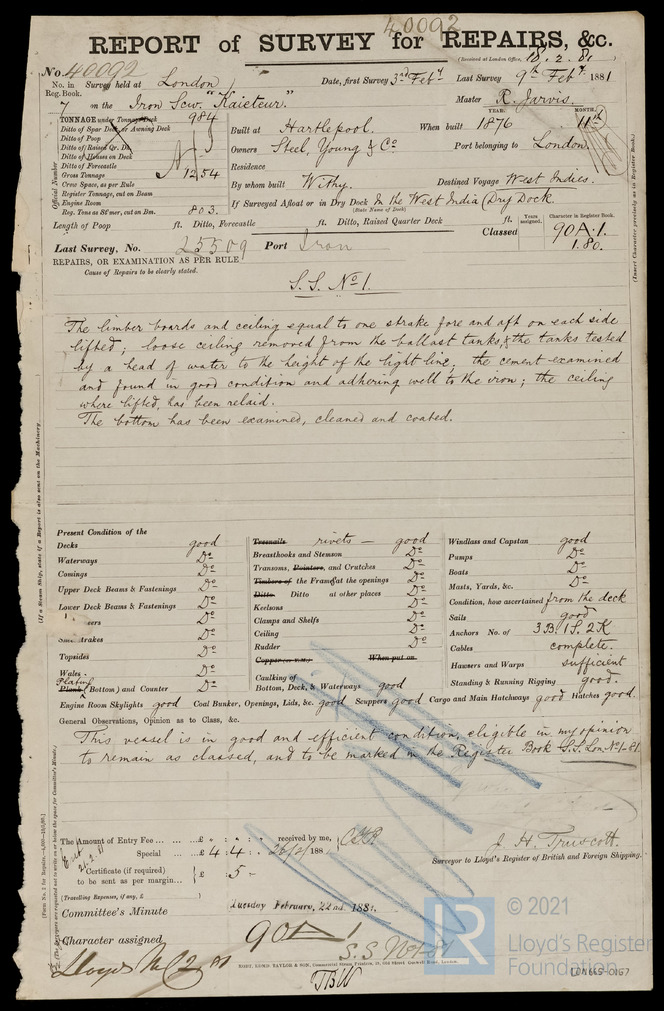 40092
REPORT of SURVEY for REPAIRS, &c.
(Received at London Office, 18.2.81
No. 40092
No. in Survey held at London Date, first Survey 3rd Feby Last Survey 9th Feby 1881
Reg. Book.
7 on the Iron Scw. "Kaieteur." Master R. Jarvis.
TONNAGE under Tonnage Deck 984
Ditto of Spar Deck or Awning Deck
Ditto of Poop
Ditto of Raised Qr. Dk.
Ditto of Houses on Deck
Ditto of Forecastle
Gross Tonnage 1254
Crew Space, as per Rule
Register Tonnage, cut on Beam
Engine Room
Reg. Tons as St'mer, cut on Bm. 803.
Official Number
Built at Hartlepool. When built YEAR. 1876 MONTH. 11th
Owners Steel, Young & Co Port belonging to London.
Residence
By whom built Withy. Destined Voyage West Indies.
If Surveyed Afloat or in Dry Dock In the West India Dry Dock.
(State Name of Dock)
Length of Poop ft. Ditto, Forecastle ft. Ditto, Raised Quarter Deck ft.
Classed Years assigned. Character in Register Book.
90A.1.
1.80.
(Insert Character precisely as in Register Book.)
Last Survey, No. 25509 Port Iron
REPAIRS, OR EXAMINATION AS PER RULE
Cause of Repairs to be clearly stated.
S.S. No 1.
The limber boards and ceiling equal to one strake fore and aft on each side
lifted; loose ceiling removed from the ballast tanks, & the tanks tested
by a head of water to the height of the light line; the cement examined
and found in good condition and adhering well to the iron; the ceiling
where lifted, has been relaid.
The bottom has been examined, cleaned and coated.
(If a Steam Ship, state if a Report is also sent on the Machinery.
Present Condition of the
Decks good
Waterways Do
Comings Do
Upper Deck Beams & Fastenings Do
Lower Deck Beams & Fastenings Do
eers Do
trakes Do
Topsides Do
Wales Do
Plating
Plank (Bottom) and Counter Do
Treenails rivets — good
Breasthooks and Stemson Do
Transoms, Pointers, and Crutches Do
Timbers of the Frame at the openings Do
Ditto. Ditto at other places Do
Keelsons Do
Clamps and Shelfs Do
Ceiling Do
Rudder Do
Copper (or Y.M.) When put on
Caulking of
Bottom, Deck, & Waterways good
Windlass and Capstan good
Pumps Do
Boats Do
Masts, Yards, &c. Do
Condition, how ascertained from the deck
Sails good
Anchors No. of 3B. 1S. 2K
Cables complete.
Hawsers and Warps sufficient
Standing & Running Rigging good.
Engine Room Skylights good Coal Bunker, Openings, Lids, &c. good Scuppers good Cargo and Main Hatchways good Hatches good.
General Observations, Opinion as to Class, &c.
This vessel is in good and efficient condition, eligible in my opinion
to remain as classed, and to be marked in the Register Book S.S. Lon. No 1-81.
The Amount of Entry Fee ... ... £ " : " : " received by me,
Special ... ... £ 4 : 4 : " 26/2/1881
Certificate (if required) £ " 5 "
to be sent as per margin...
(Travelling Expenses, if any, £ )
J. H. Truscott.
Surveyor to Lloyd's Register of British and Foreign Shipping.
Committee's Minute Tuesday February, 22nd. 1881.
Character assigned 90A1
S.S. No 1-81
ROBT. EDMD. TAYLOR & SON,
TBW
LR
© 2021
Lloyd's Register
Foundation
LON665-0157